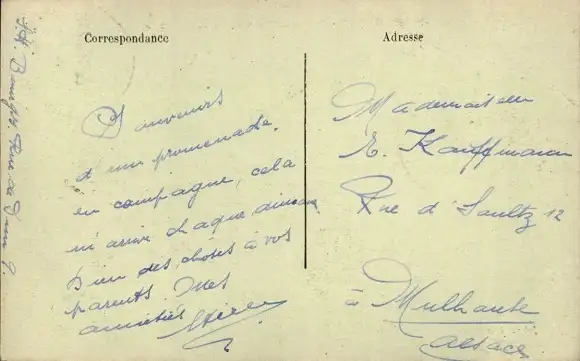 Correspondance
Souvenirs
d'une promenade.
en campagne, cela
m'arrive chaque dimanche
bien des choses à vos
parents. Mes
amitiés
Adresse
Mademoiselle
E. Kauffmann
Rue d'Soultz 12
à Mulhouse
Alsace
Rue de